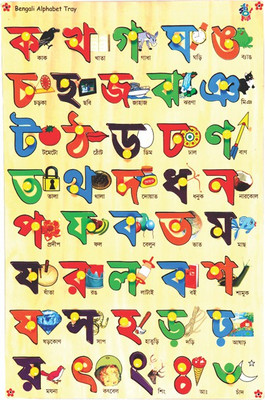 Bengali Alphabet Tray
ক খ গ ঘ ঙ
কাক খাতা গাধা ঘড়ি ব্যাঙ
চ ছ জ ঝ ঞ
চড়কা ছবি জাহাজ ঝরণা মিঞা
ট ঠ ড ঢ ণ
টমেটো ঠোঁট ডিম ঢাল বাণ
ত থ দ ধ ন
তালা থালা দোয়াত ধনুক নারকোল
প ফ ব ভ ম
প্রদীপ ফল বেলুন ভাত মাছ
য র ল ব শ
যাঁতা রঙ লাটাই বই শামুক
ষ স হ ড় ঢ়
ষড়কোণ সাপ হাতুড়ি আষাঢ়
য় ৎ ং ঃ ঁ
ময়না কৎবেল শিং আঃ চাঁদ